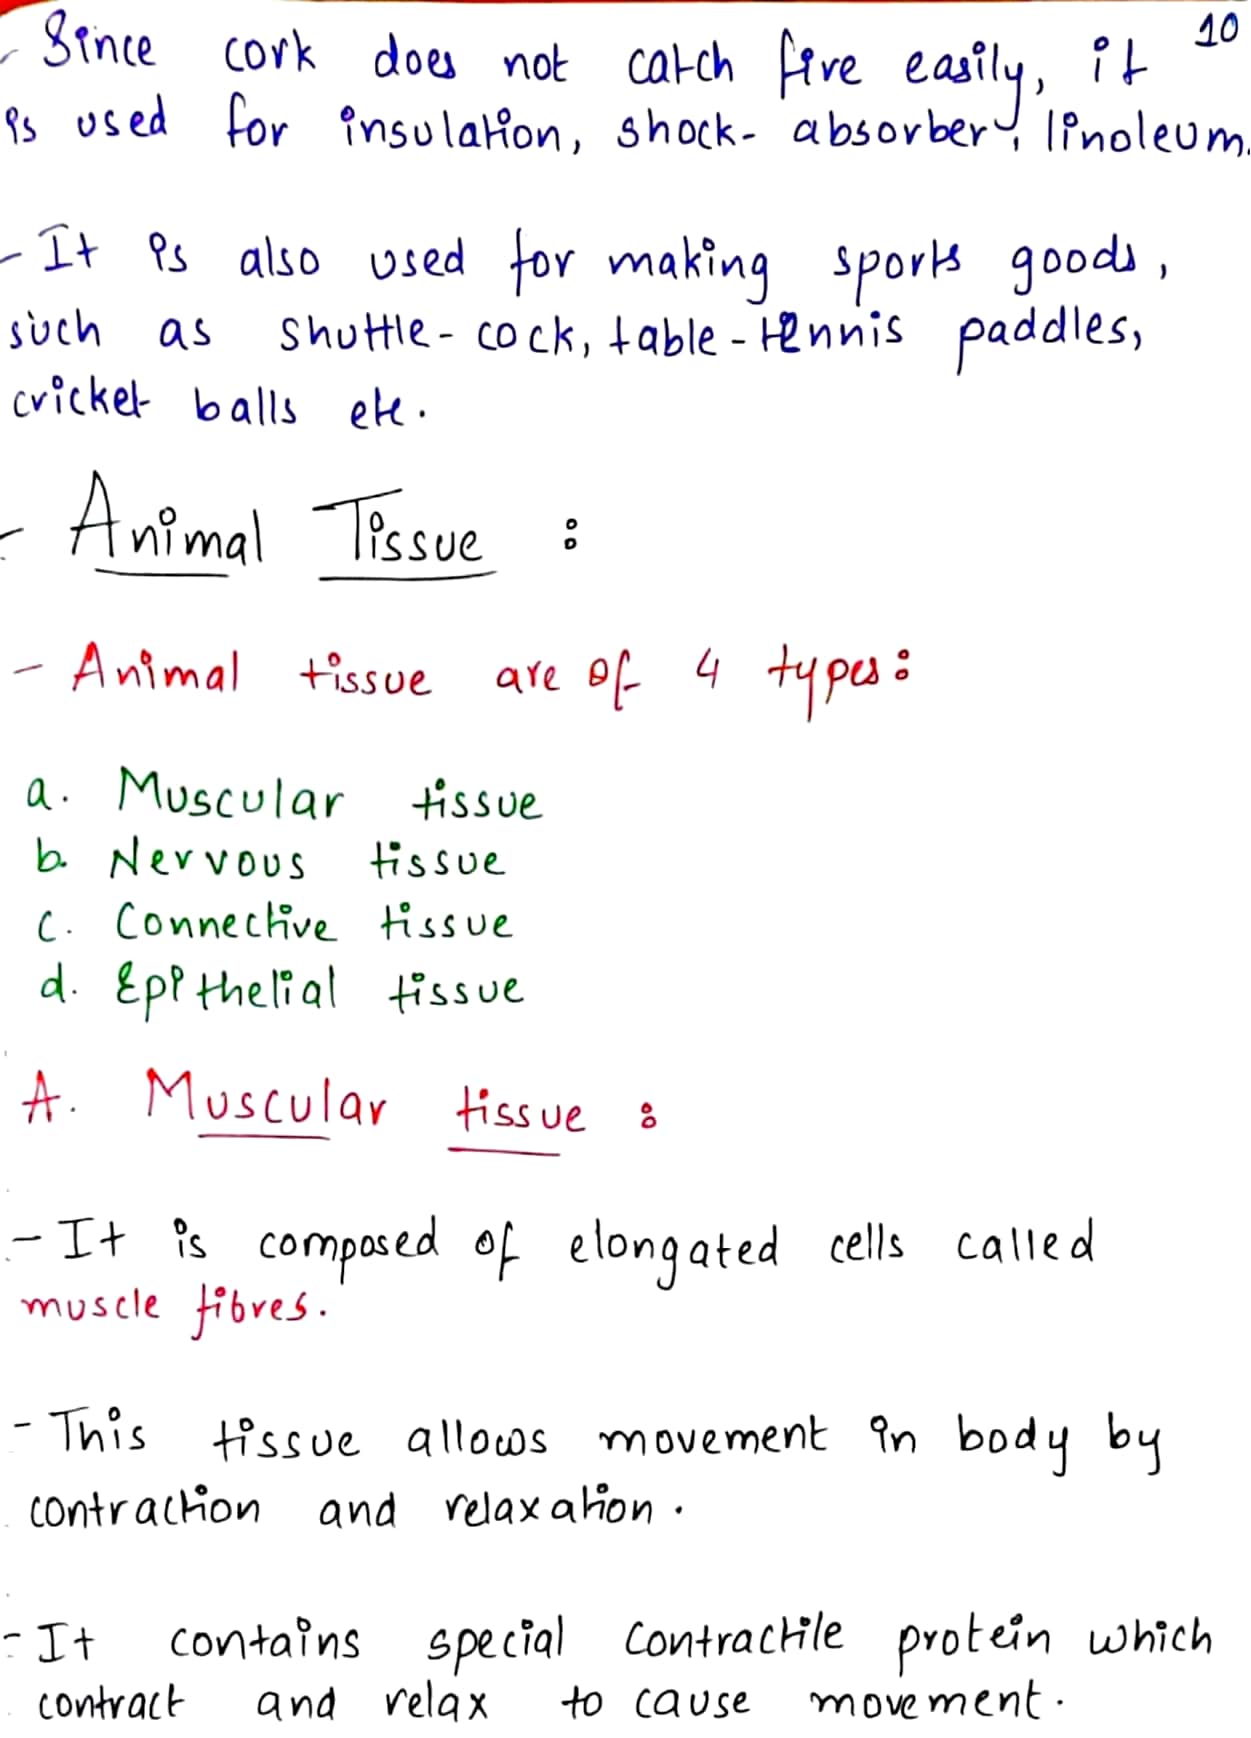 10
- Since cork does not catch fire easily, it
is used for insulation, shock-absorber, linoleum.
- It is also used for making sports goods,
such as shuttle-cock, table-tennis paddles,
cricket balls etc.
- Animal Tissue :
- Animal tissue are of 4 types:
a. Muscular tissue
b. Nervous tissue
c. Connective tissue
d. Epithelial tissue
A. Muscular tissue :
- It is composed of elongated cells called
muscle fibres.
- This tissue allows movement in body by
contraction and relaxation.
- It contains special contractile protein which
contract and relax to cause movement.